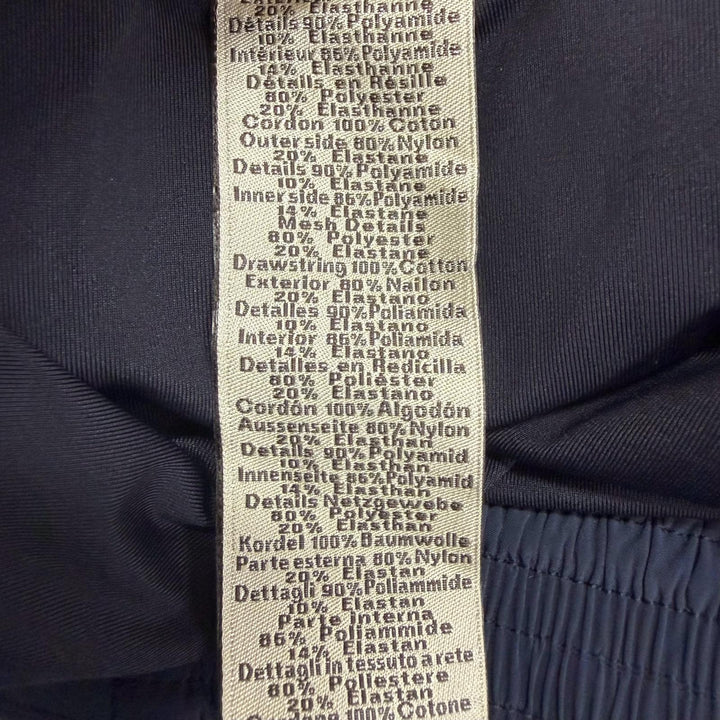 20% Elasthanne
Détails 90% Polyamide
10% Elasthanne
Intérieur 86% Polyamide
14% Elasthanne
Détails en Résille
80% Polyester
20% Elasthanne
Cordon 100% Coton
Outer side 80% Nylon
20% Elastane
Details 90% Polyamide
10% Elastane
Inner side 86% Polyamide
14% Elastane
Mesh Details
80% Polyester
20% Elastane
Drawstring 100% Cotton
Exterior 80% Nailon
20% Elastano
Detalles 90% Poliamida
10% Elastano
Interior 86% Poliamida
14% Elastano
Detalles en Redicilla
80% Poliéster
20% Elastano
Cordón 100% Algodón
Aussenseite 80% Nylon
20% Elasthan
Details 90% Polyamid
10% Elasthan
Innenseite 86% Polyamid
14% Elasthan
Details Netzgewebe
80% Polyester
20% Elasthan
Kordel 100% Baumwolle
Parte esterna 80% Nylon
20% Elastan
Dettagli 90% Poliammide
10% Elastan
Parte interna
86% Poliammide
14% Elastan
Dettagli in tessuto a rete
80% Poliestere
20% Elastan
100% Cotone